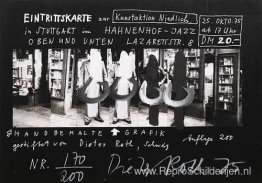 EINTRITTSKARTE zur Kunstaktion Niedlich
25. OKTO. 75
ab 17 Uhr
DM 20.-
in STUTTGART im HAHNENHOF-JAZZ
OBEN UND UNTEN LAZARETTSTR. 8
HANDBEMALTE GRAFIK
Auflage 200
gestiftet von Dieter Roth,
NR. 170/200 Dieter Roth 75
www.ReproSchilderijen.nl